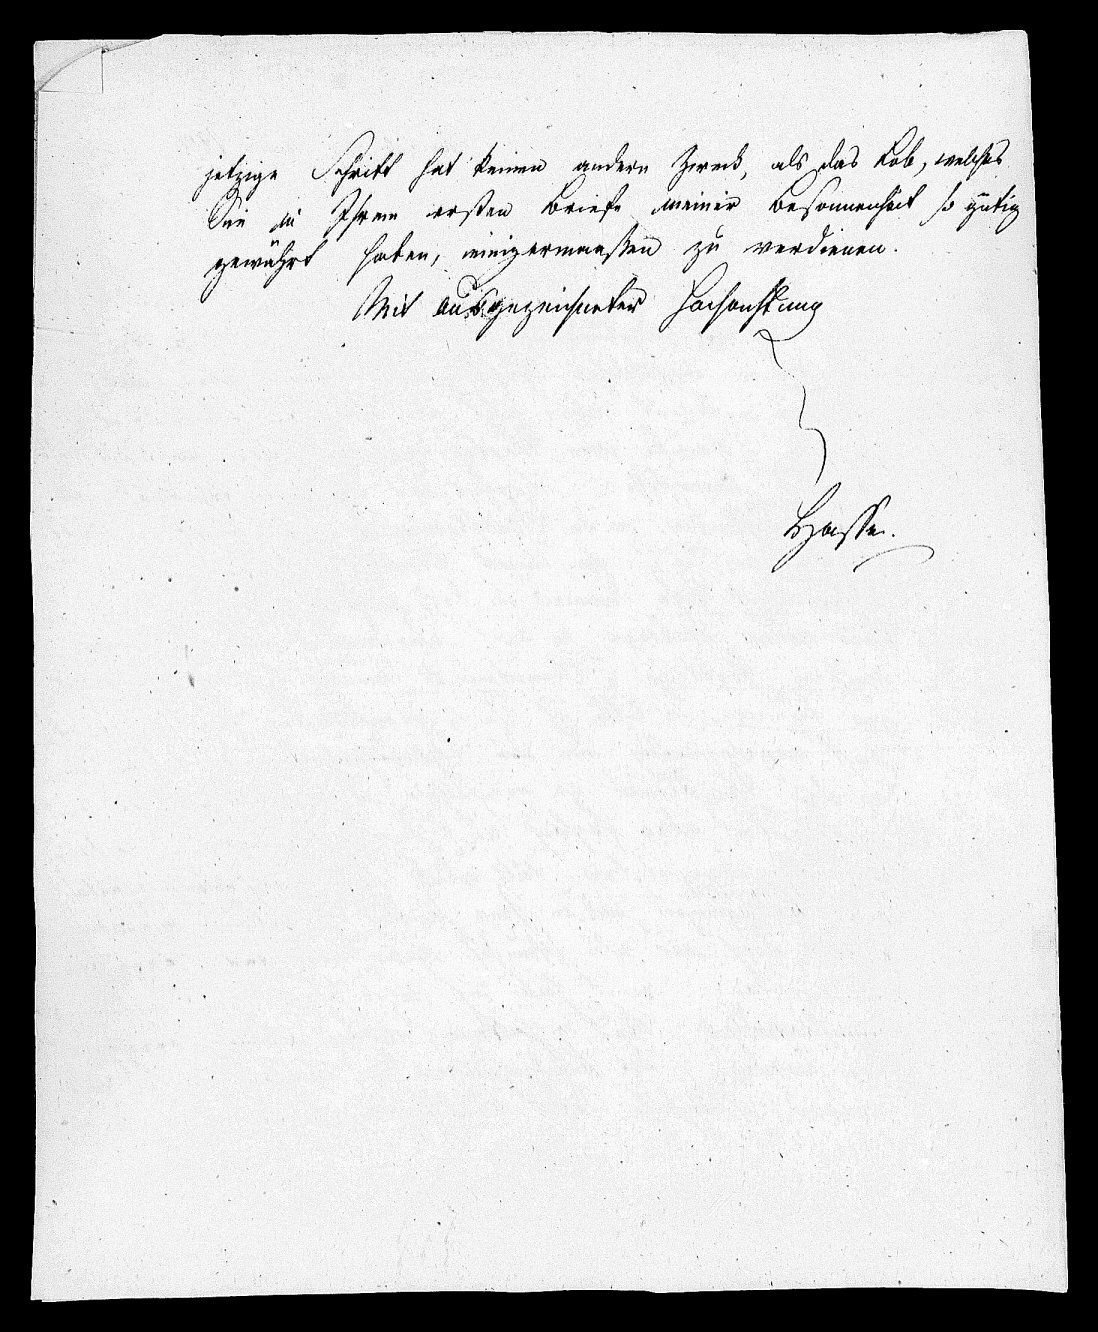 jetzige Schritt hat keinen andern Zweck, als das Lob, welches
Sie in Ihrem ersten Briefe meiner Besonnenheit so gütig
gewährt haben, einigermaaßen zu verdienen.
Mit ausgezeichneter Hochachtung
Hasse.